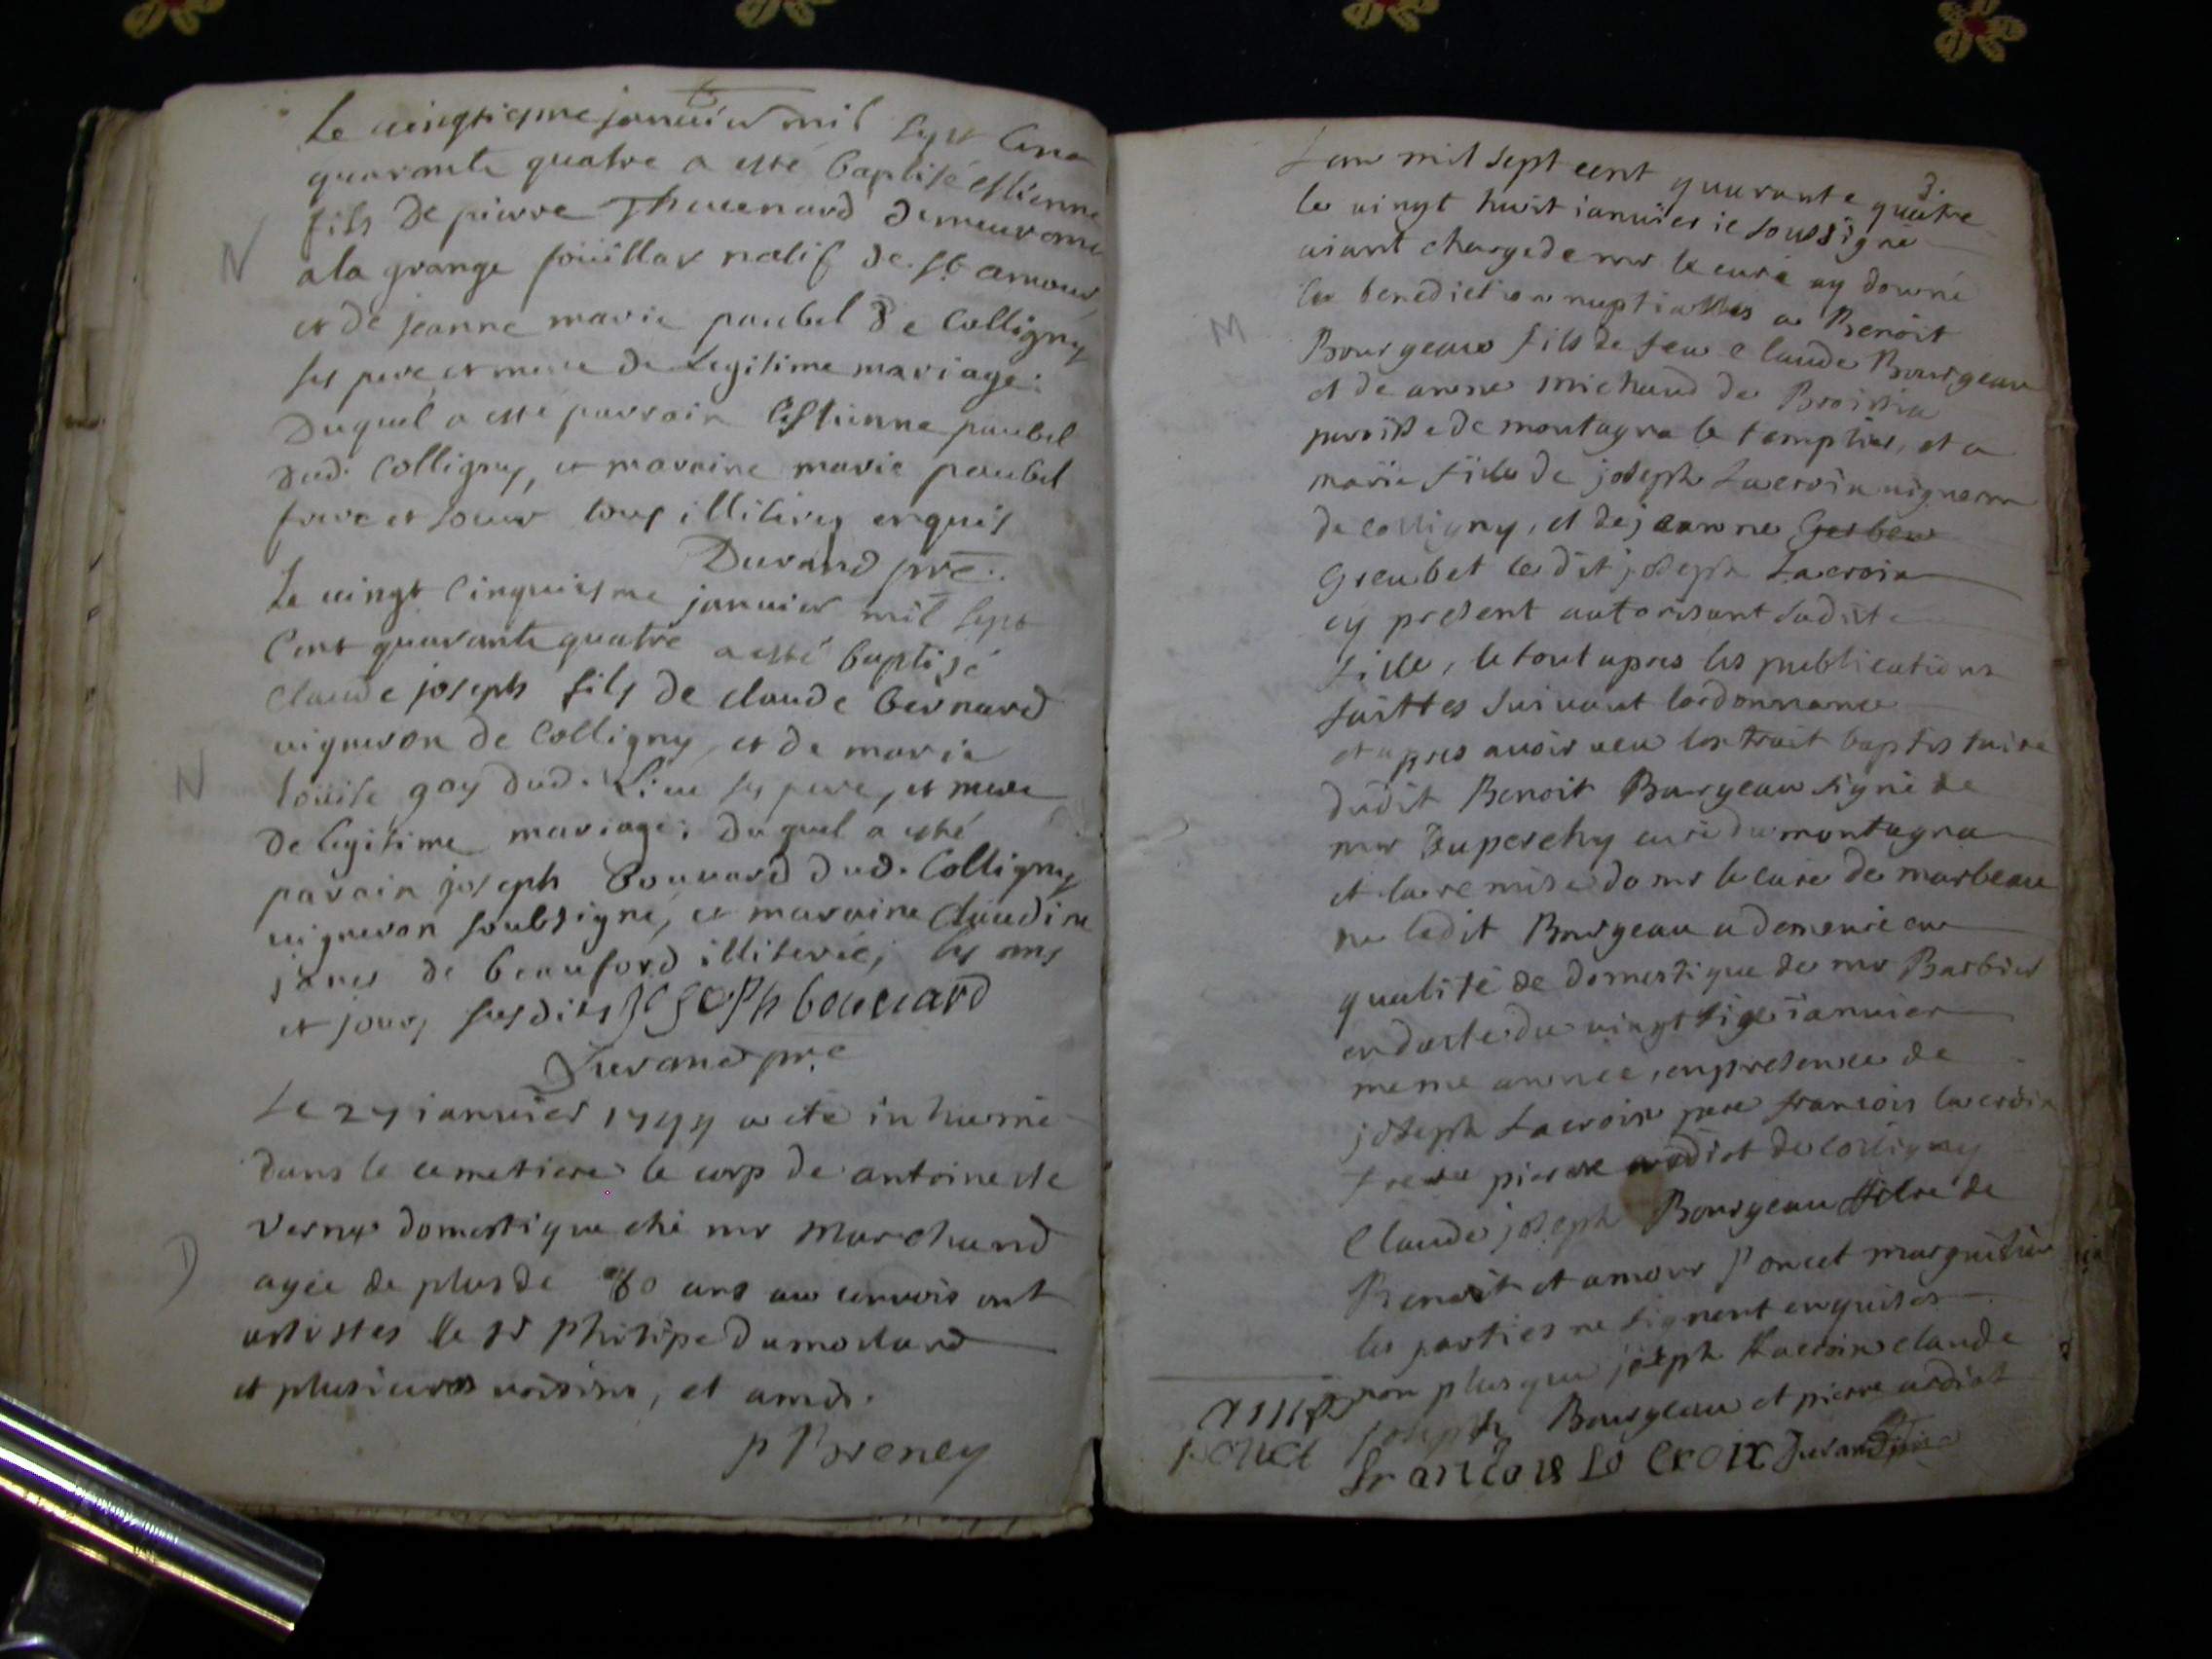 Le vingtiesme janvier mil sept cens
quarante quatre a esté baptisé estienne
fils de pierre Thevenard demeurant
N
a la grange foüillar natif de st amour,
et de jeanne marie paubel de Colligny
ses pere et mere de Legitime mariage:
Duquel a esté parrain Estienne paubel
dud. Colligny, et maraine marie paubel
frere et soeur tous illiterez enquis
Durand pre.
Le vingt cinquiesme janvier mil sept
Cent quarante quatre a esté baptisé
claude joseph fils de claude bernard
vigneron de Colligny, et de marie
N
loüise goy dud. Lieu ses pere, et mere
de legitime mariage; duquel a esté
parain joseph Bouvard dud. Colligny
vigneron soubsigné, et maraine claudine
de beauford illiterée; les ans
et jours susdits joseph bouvard
Durand pre
Le 27 janvier 1744 a eté inhumé
dans le cemetiere le corp de antoine de
verny domestique ché mr Marchand
D
agée de plus de 60 ans au convois ont
assistes le sr philipe dumolard
et plusieurs voisins, et amis.
p Breney
3.
Lan mil sept cent quarante quatre
le vingt huit janvier ie soussigné
aiant charge de mr le curé ay donné
la benediction nuptialles a Benoit
M
Bourgeau fils de feu claude Bourgeau
et de anne michaud de Broissia
paroisse de montagna le templier, et a
marie fille de joseph Lacroix vigneron
de colligny, et de jeanne Gerbeu
Greubet ledit joseph Lacroix
cy present autorisant sadite
fille, le tout apres les publications
faittes suivant lordonnance
et apres avoir veu lextrait baptistaire
dudit Benoit Bourgeau signé de
mr Duperchy curé du montagna
et la remise de mr le curé de marbeau
ou ledit Bourgeau a demeuré en
qualité de domestique de mr Barbier
en darte du vingt sixe janvier
meme année, en presence de
joseph Lacroix pere francois lacroix
frere pierre ardiet de colligny
Claude joseph Bourgeau frere de
Benoit et amour Poncet marguillier
les parties ne signent enquises
non plus que joseph Lacroix claude
joseph Bourgeau et pierre ardiet
poncet
francois La croix Durand pre